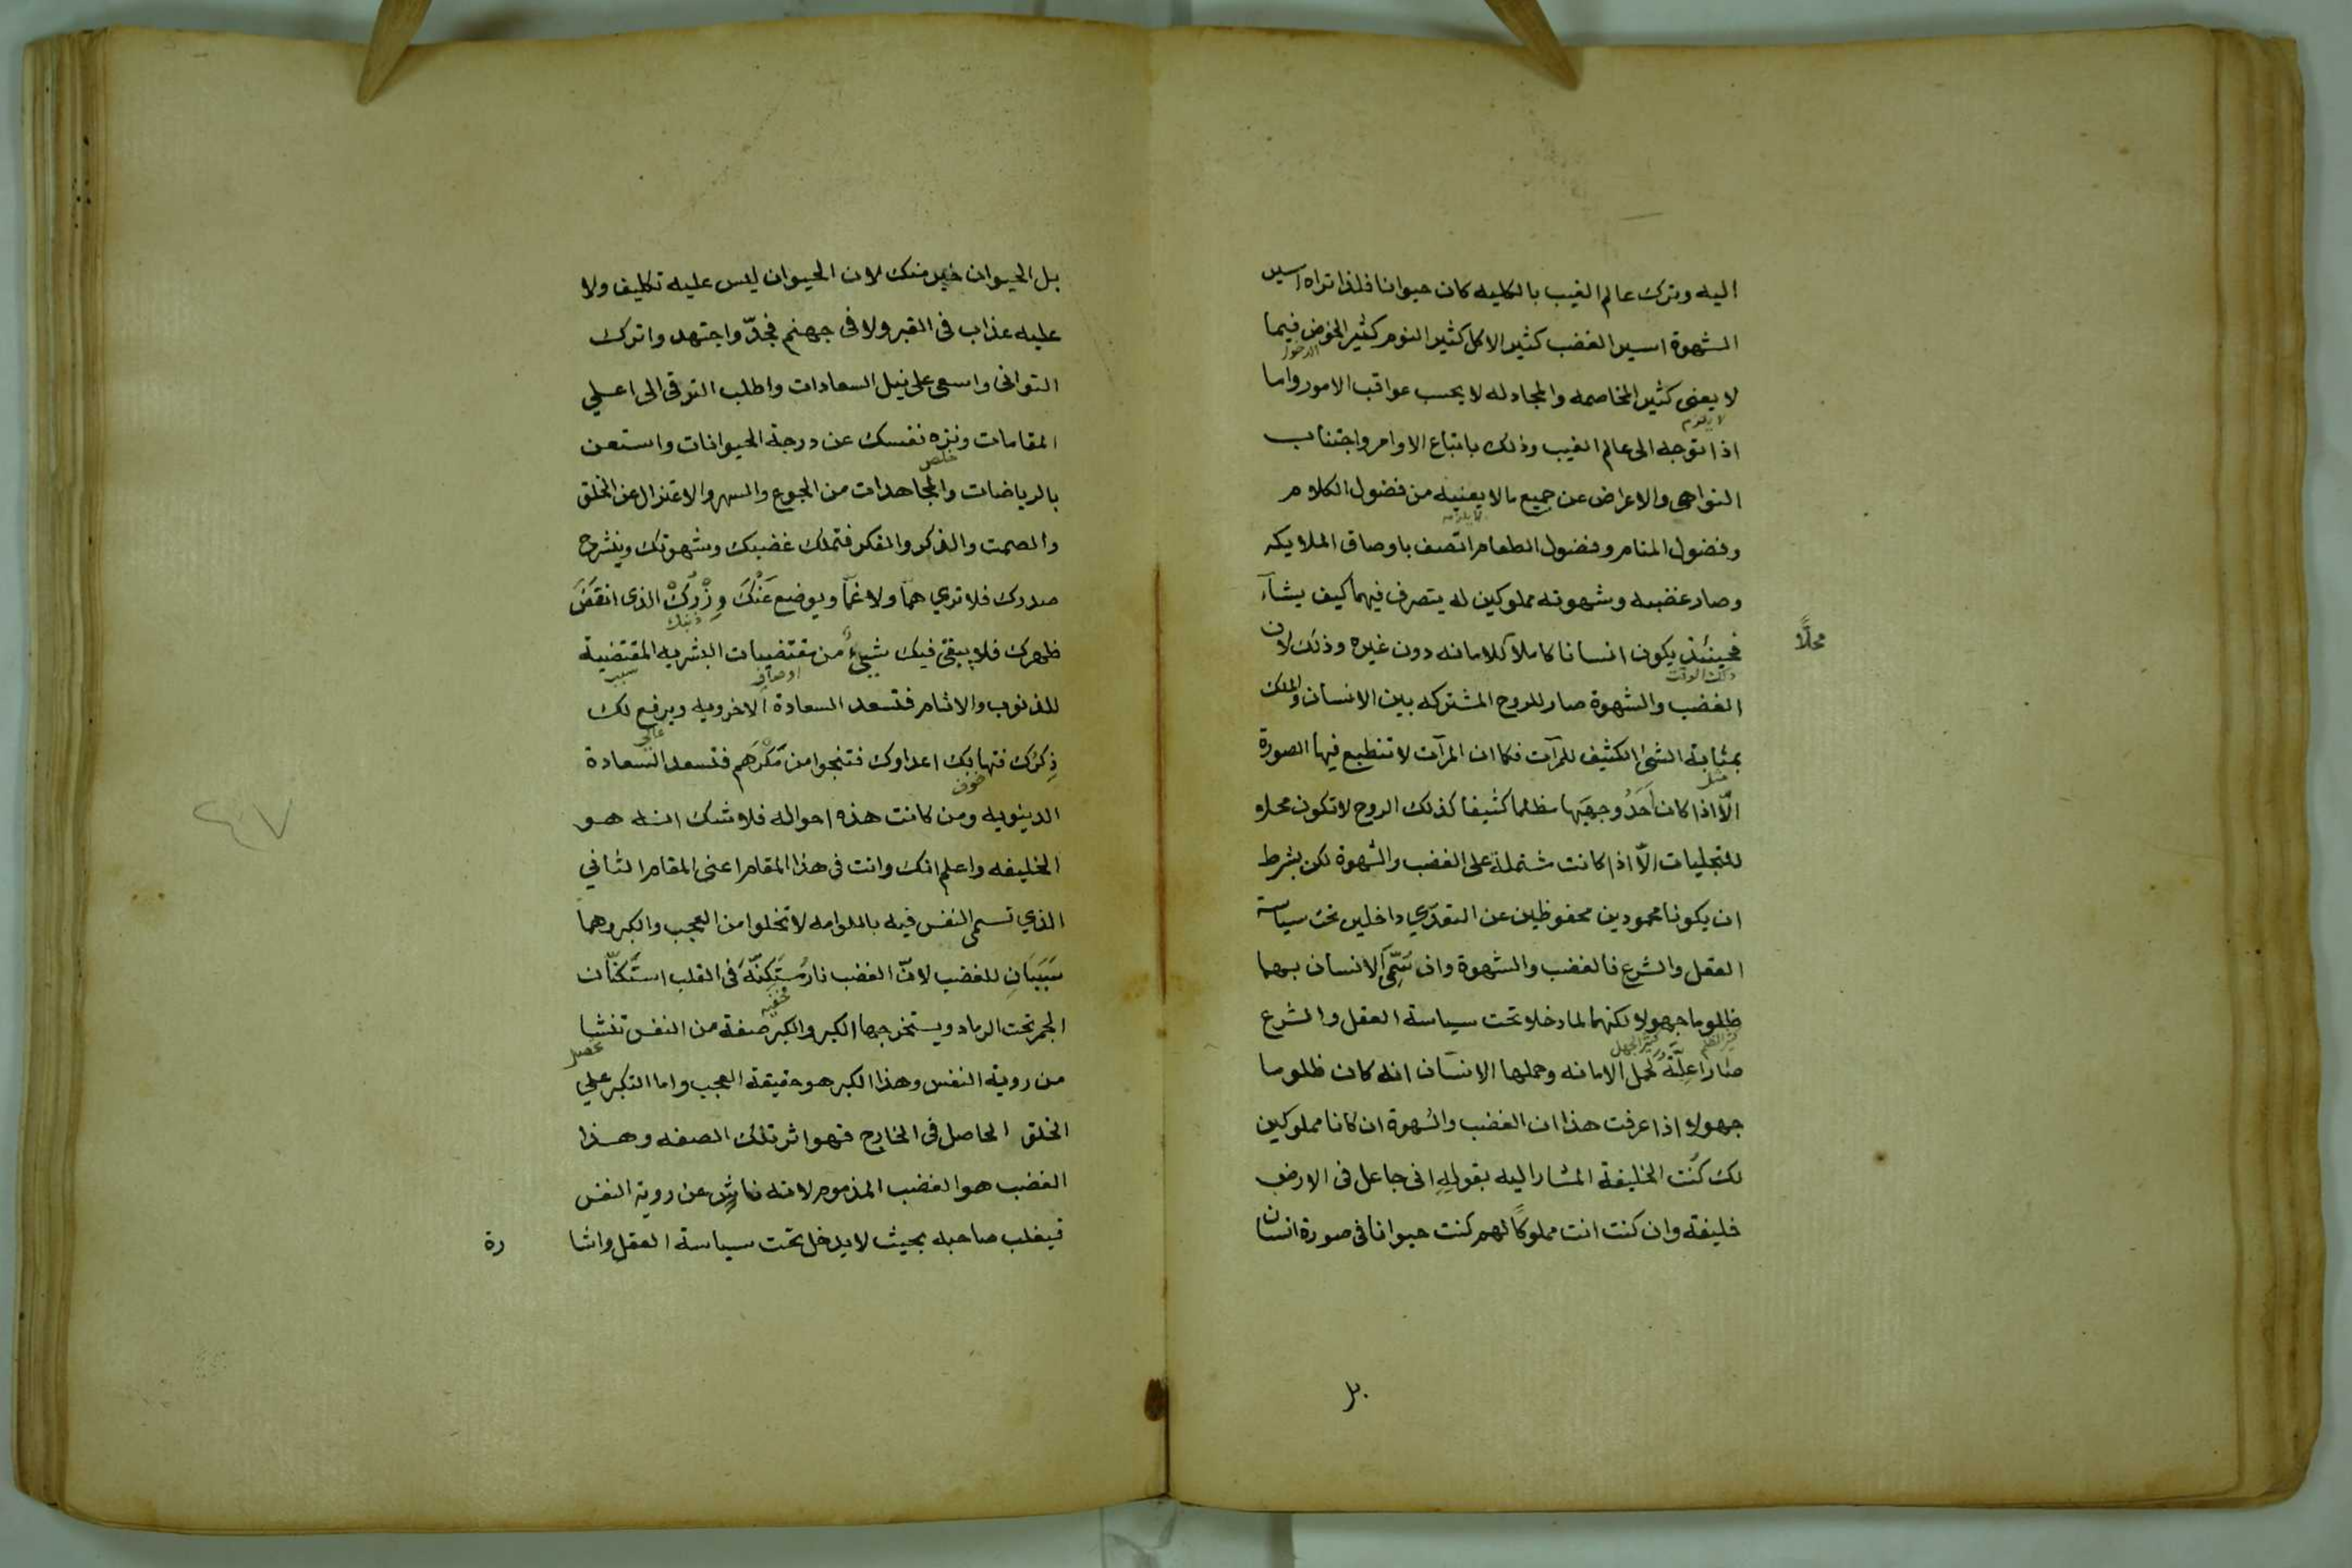 اليه وترك عالم الغيب بالكليه كان حيوانا فلذا تراه اسير
الشهوة اسير الغضب كثير الاكل كثير النوم كثير الخوض فيما
الدخول
لا يعنى كثير المخاصمه والمجادله لا يحسب عواقب الامور واما
لا يلزم
اذا توجه الى عالم الغيب وذلك باتباع الاوامر واجتناب
النواهى والاعراض عن جميع ما لا يعنيه من فضول الكلام
لا يلزمه
وفضول المنام وفضول الطعام اتصف باوصاف الملايكه
وصار غضبه وشهوته مملوكين له يتصرف فيهما كيف يشآء
فحينئذ يكون انسانا كاملا كلامانه دون غيره وذلك لان
محلًّا
ذلك الوقت
الغضب والشهوة صار للروح المشتركه بين الانسان والملك
بمثابة الشئ الكثيف للمرآت فكما ان المرآت لا تنطبع فيها الصورة
مثل
الّا اذا كان اَحَدُ وجهيَها مظلما كثيفا كذلك الروح لا تكون محلا
للتجليات الّا اذا كانت مشتملة على الغضب والشهوة لكن بشرط
ان يكونا محمودين محفوظين عن التعدّي داخلين تحت سياسة
العقل والشرع فالغضب والشهوة وان سُمِّىَ الانسان بهما
ظلوما جهولا لكنهما لما دخلا تحت سياسة العقل والشرع
كثير الظلم
كثير الجهل
صارا عِلّة لحمل الامانه وحملها الانسان انه كان ظلوما
جهولا اذا عرفت هذا ان الغضب والشهوة ان كانا مملوكين
لك كُنت الخليفة المشار اليه بقولِهِ انى جاعل فى الارض
خليفة وان كنت انت مملوكًا لهم كنت حيوانا فى صورة انسان
بل
بل الحيوان خير منك لان الحيوان ليس عليه تكليف ولا
عليه عذاب فى القبر ولا فى جهنم فجدّ واجتهد واترك
التوانى واسعى على نيل السعادات واطلب الترقى الى اعلي
المقامات ونزه نفسك عن درجة الحيوانات واستعن
خلص
بالرياضات والمجاهدات من الجوع والسهر والاعتزال عن الخلق
والصمت والذكر والفكر فتملك غضبك وشهوتك وينشرح
صدرك فلا تري همّا ولا غمّا ويوضع عَنْكَ وِزْرُكْ الذى انقَضَ
ذنبك
ظهرك فلا يبقى فيك شيءٌ من مقتضيات البشريه المقتضية
اوصاف
سبب
للذنوب والاثام فتسعد السعادة الاخرويه ويرفع لك
عالى
ذِكرُك فتهابك اعداوك فتنجوا من مَكْرِهم فتسعد السعادة
خوف
الدينويه ومن كانت هذه احواله فلا شك انه هو
٤٧
الخليفه واعلم انك وانت فى هذا المقام اعنى المقام الثاني
الذي تسمى النفس فيه باللوامه لا تخلوا من العجب والكبر وهما
سَبَبَانِ للغضب لانّ الغضب نارٌ مستَكِنّةٌ فى القلب استَكنّان
مخفيه
الجمر تحت الرماد ويستخرجها الكبر والكبر صفة من النفس تنشا
تحصل
من روية النفس وهذا الكبر هو حقيقة العجب واما التكبر علي
الخلق الحاصل فى الخارج فهو اثر تلك الصفه وهذا
الغضب هو الغضب المذموم لانه ناشٍ عن روية النفس
فيغلب صاحبه بحيث لا يدخل تحت سياسة العقل واشا
رة